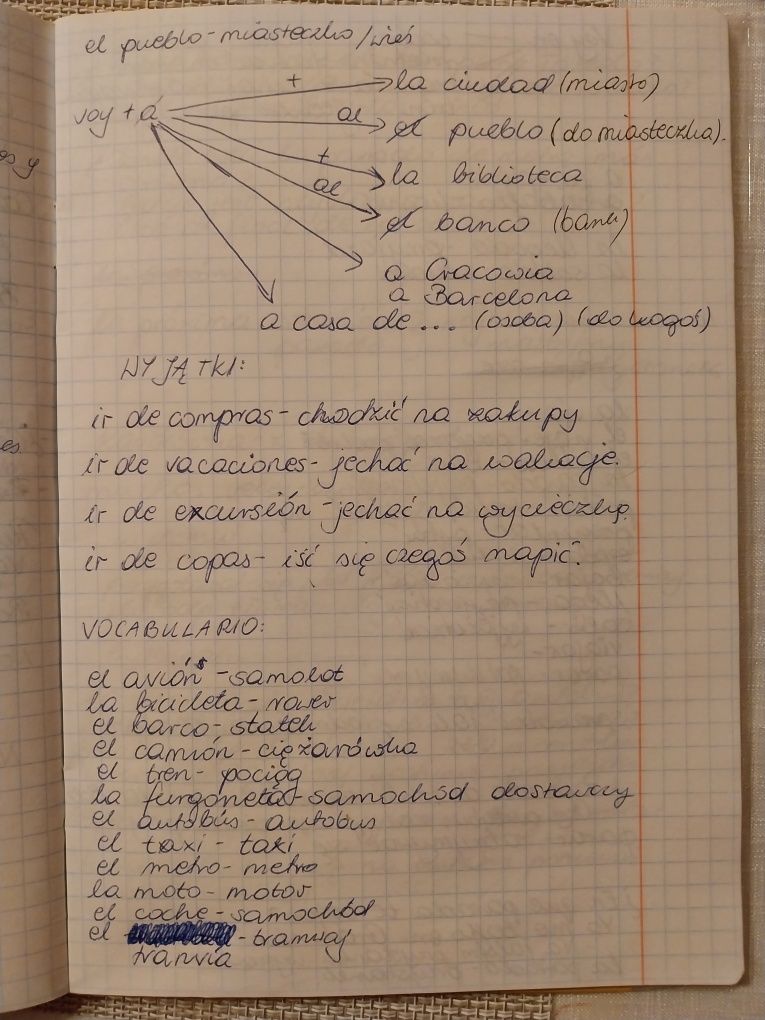 el pueblo - miasteczko/wieś
+ la ciudad (miasto)
voy + a
al el pueblo (do miasteczka).
+ la biblioteca
al el banco (bank)
a Cracowia
a Barcelona
a casa de ... (osoba) (do kogoś)
WYJĄTKI:
ir de compras - chodzić na zakupy
ir de vacaciones - jechać na wakacje.
ir de excursión - jechać na wycieczkę.
ir de copas - iść się czegoś napić.
VOCABULARIO:
el avión - samolot
la bicicleta - rower
el barco - statek
el camión - ciężarówka
el tren - pociąg
la furgoneta - samochód dostawczy
el autobús - autobus
el taxi - taxi
el metro - metro
la moto - motor
el coche - samochód
el - tramwaj
tranvía
es y
es